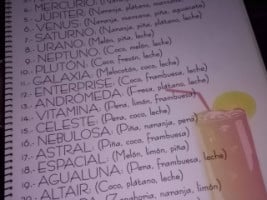 MERCURIO: (Naranja,
5.- JÚPITER: (Naranja, plátano,
6.- VENUS: (Naranja, piña,
7.- SATURNO: (Naranja, piña, leche)
8.- URANO: (Melón, piña, leche)
9.- NEPTUNO: (Coco, melón, leche)
10.- PLUTÓN: (Coco, frambuesa, leche)
11.- GALAXIA: (Melocotón, coco, leche)
12.- ENTERPRISE: (Coco, frambuesa, leche)
13.- ANDRÓMEDA: (Fresa, plátano, leche)
14.- VITAMINA: (Pera, limón, frambuesa)
15.- CELESTE: (Pera, coco, leche)
16.- NEBULOSA: (Piña, naranja, pera)
17.- ASTRAL: (Piña, coco, frambuesa)
18.- ESPACIAL: (Melón, limón, piña)
19.- AGUALUNA: (Pera, frambuesa, leche)
20.- ALTAIR: (Coco, plátano, leche)
(Zanahoria, naranja, limón)